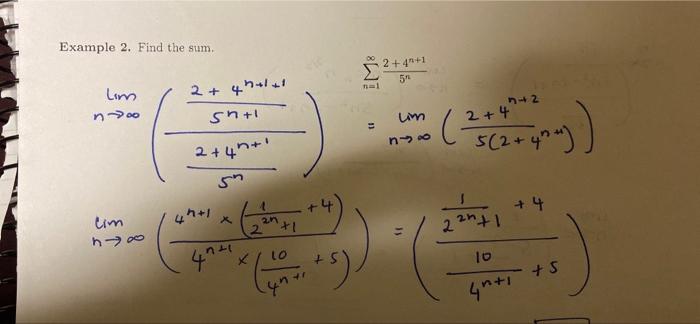 Example 2. Find the sum.
\sum_{n=1}^{\infty} \frac{2+4^{n+1}}{5^n}
\lim_{n \to \infty} \left( \frac{\frac{2+4^{n+1+1}}{5^{n+1}}}{\frac{2+4^{n+1}}{5^n}} \right) = \lim_{n \to \infty} \left( \frac{2+4^{n+2}}{5(2+4^{n+1})} \right)
\lim_{n \to \infty} \left( \frac{4^{n+1} \times \left( \frac{1}{2^{2n}+1} + 4 \right)}{4^{n+1} \times \left( \frac{10}{4^{n+1}} + 5 \right)} \right) = \left( \frac{\frac{1}{2^{2n}+1} + 4}{\frac{10}{4^{n+1}} + 5} \right)